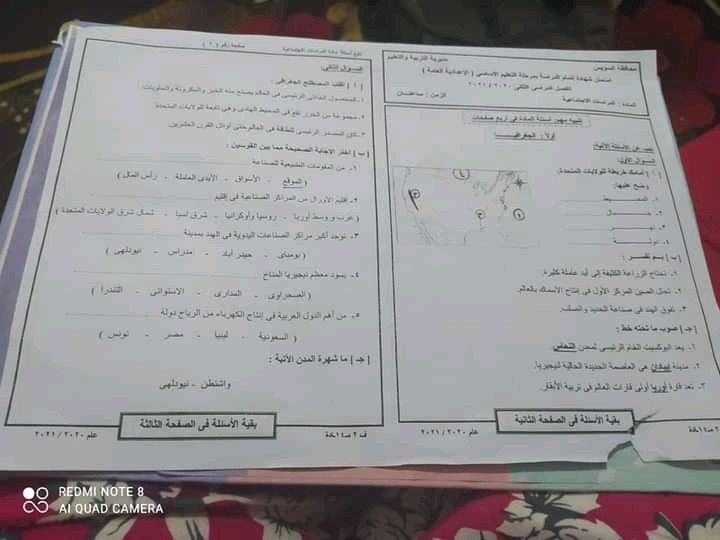 محافظة السويس
مديرية التربية والتعليم
امتحان شهادة إتمام الدراسة بمرحلة التعليم الأساسي ( الإعدادية العامة )
الفصل الدراسي الثاني ٢٠٢٠ / ٢٠٢١
المادة : الدراسات الاجتماعية
الزمن : ساعتان
تنبيه مهم: أسئلة المادة فى أربع صفحات
أولاً : الجغرافيا
أجب عن الأسئلة الآتية:
السؤال الأول:
[ أ ] أمامك خريطة للولايات المتحدة،
وضح عليها:
١ - المحيط
٢ - جبال
٣ - نهر
٤ - دولة
[ ب ] بم تفسر :
١. تحتاج الزراعة الكثيفة إلى أيد عاملة كثيرة.
٢. تحتل الصين المركز الأول فى إنتاج الأسماك بالعالم.
٣. تفوق الهند فى صناعة الحديد والصلب.
[ جـ ] صوب ما تحته خط :
١ - يعد البوكسيت الخام الرئيسى لمعدن النحاس.
٢. مدينة إبيدان هى العاصمة الجديدة الحالية لنيجيريا.
٣. تعد قارة أوربا أولى قارات العالم فى تربية الأبقار.
بقية الأسئلة فى الصفحة الثانية
عام ٢٠٢٠ / ٢٠٢١
تابع أسئلة مادة الدراسات الاجتماعية
صفحة رقم ( ٢ )
السؤال الثانى:
[ أ ] اكتب المصطلح الجغرافى :
١- المحصول الغذائى الرئيسى فى العالم يصنع منه الخبز والمكرونة والحلويات.
٢- مجموعة من الجزر تقع فى المحيط الهادى وهى تابعة للولايات المتحدة.
٣- كان المصدر الرئيسى للطاقة فى العالم حتى أوائل القرن العشرين.
[ ب ] اختر الإجابة الصحيحة مما بين القوسين :
١- من المقومات الطبيعية للصناعة
( الموقع - الأسواق - الأيدى العاملة - رأس المال )
٢. إقليم الأورال من المراكز الصناعية فى إقليم
( غرب ووسط أوربا - روسيا وأوكرانيا - شرق آسيا - شمال شرق الولايات المتحدة )
٣- توجد أكبر مراكز الصناعات اليدوية فى الهند بمدينة
( بومباى - حيدر أباد - مدراس - نيودلهى )
٤ - يسود معظم نيجيريا المناخ
( الصحراوى - المدارى - الاستوائى - التندرا )
٥- من أهم الدول العربية فى إنتاج الكهرباء من الرياح دولة
( السعودية - ليبيا - مصر - تونس )
[ جـ ] ما شهرة المدن الآتية :
واشنطن - نيودلهى
بقية الأسئلة فى الصفحة الثالثة
عام ٢٠٢٠ / ٢٠٢١
REDMI NOTE 8
AI QUAD CAMERA